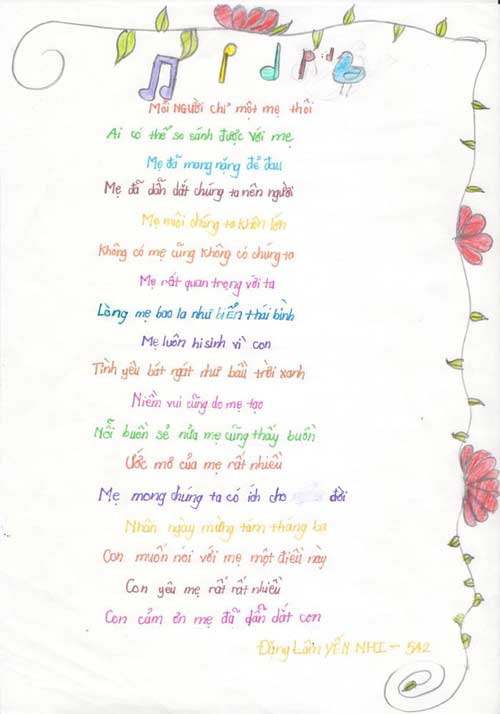 Mỗi NGƯỜI chỉ một mẹ thôi
Ai có thể so sánh được với mẹ
Mẹ đã mang nặng đẻ đau
Mẹ đã dẫn dắt chúng ta nên người
Mẹ nuôi chúng ta khôn lớn
Không có mẹ cũng không có chúng ta
Mẹ rất quan trọng với ta
Lòng mẹ bao la như biển thái bình
Mẹ luôn hi sinh vì con
Tình yêu bát ngát như bầu trời xanh
Niềm vui cũng do mẹ tạo
Nỗi buồn sẻ nửa mẹ cũng thấy buồn
Ước mơ của mẹ rất nhiều
Mẹ mong chúng ta có ích cho đời
Nhân ngày mừng tám tháng ba
Con muốn nói với mẹ một điều này
Con yêu mẹ rất rất nhiều
Con cảm ơn mẹ đã dẫn dắt con
Đặng Lâm YẾN NHI - 5A2